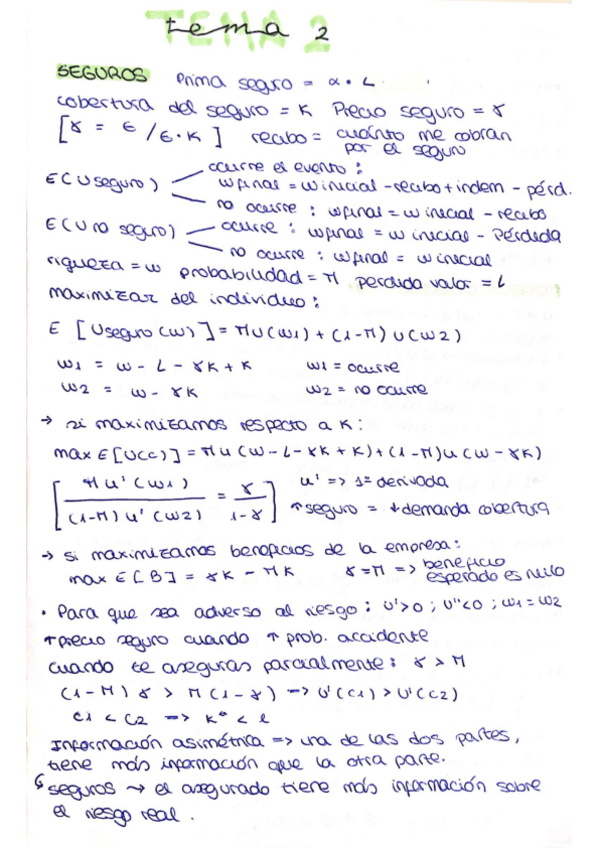 TEMA 2
tema 2
SEGUROS Prima seguro = α · L
cobertura del seguro = K Precio seguro = γ
[γ = ε / ε · K] recibo = cuánto me cobran
por el seguro
E(Useguro) ocurre el evento:
wfinal = winicial - recibo + indem - pérd.
no ocurre: wfinal = winicial - recibo
E(U no seguro) ocurre: wfinal = w inicial - Pérdida
no ocurre: wfinal = w inicial
riqueza = w probabilidad = π perdida valor = L
maximizar del individuo:
E [Useguro (w)] = πU(w1) + (1-π) U(w2)
w1 = w - L - γK + K w1 = ocurre
w2 = w - γK w2 = no ocurre
→ si maximizamos respecto a K:
max E[U(c)] = πu(w-L-γK+K)+(1-π)u(w-γK)
[πu'(w1) / (1-π)u'(w2) = γ / 1-γ] u' => 1ª derivada
↑seguro = ↓demanda cobertura
→ si maximizamos beneficios de la empresa:
max E[B] = γK - πK γ=π => beneficio
esperado es nulo
· Para que sea adverso al riesgo: U'>0; U''<0; w1=w2
↑precio seguro cuando ↑ prob. accidente
cuando te aseguras parcialmente: γ > π
(1-π) γ > π(1-γ) => U'(c1) > U'(c2)
c1 < c2 => K* < l
Información asimétrica => una de las dos partes,
tiene más información que la otra parte.
↳ seguros → el asegurado tiene más información sobre
el riesgo real.